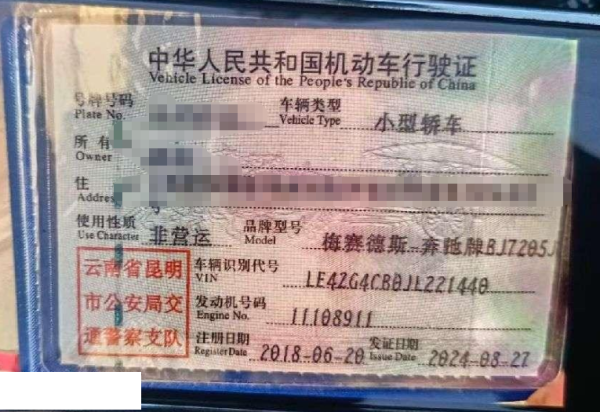 中华人民共和国机动车行驶证
Vehicle License of the People's Republic of China
号牌号码
Plate No.
车辆类型
Vehicle Type
小型轿车
所有
Owner
住
Address
号
使用性质
Use Character
非营运
品牌型号
Model
梅赛德斯-奔驰牌BJ7205J
云南省昆明
市公安局交
通警察支队
车辆识别代号
VIN
LE4ZG4CB0JL221440
发动机号码
Engine No.
11108911
注册日期
Register Date
2018-06-20
发证日期
Issue Date
2024-08-27